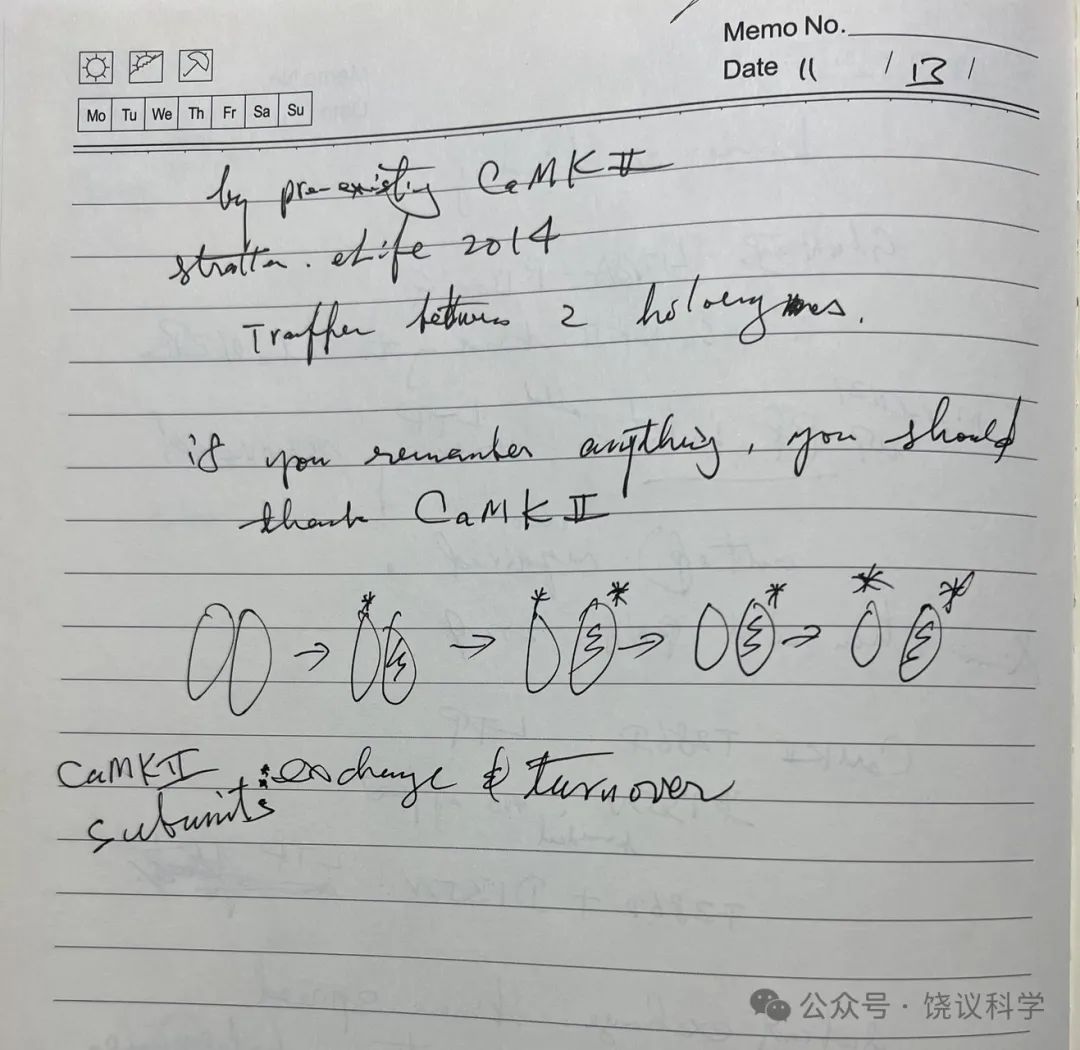 Memo No.
Date 11 / 13 /
Mo Tu We Th Fr Sa Su
by pre-existing CaMKII
Stratton. eLife 2014
between 2 holoenzymes.
if you remember anything, you should
thank CaMKII
* * * * * *
CaMKII : exchange & turnover
subunits
公众号 · 饶议科学